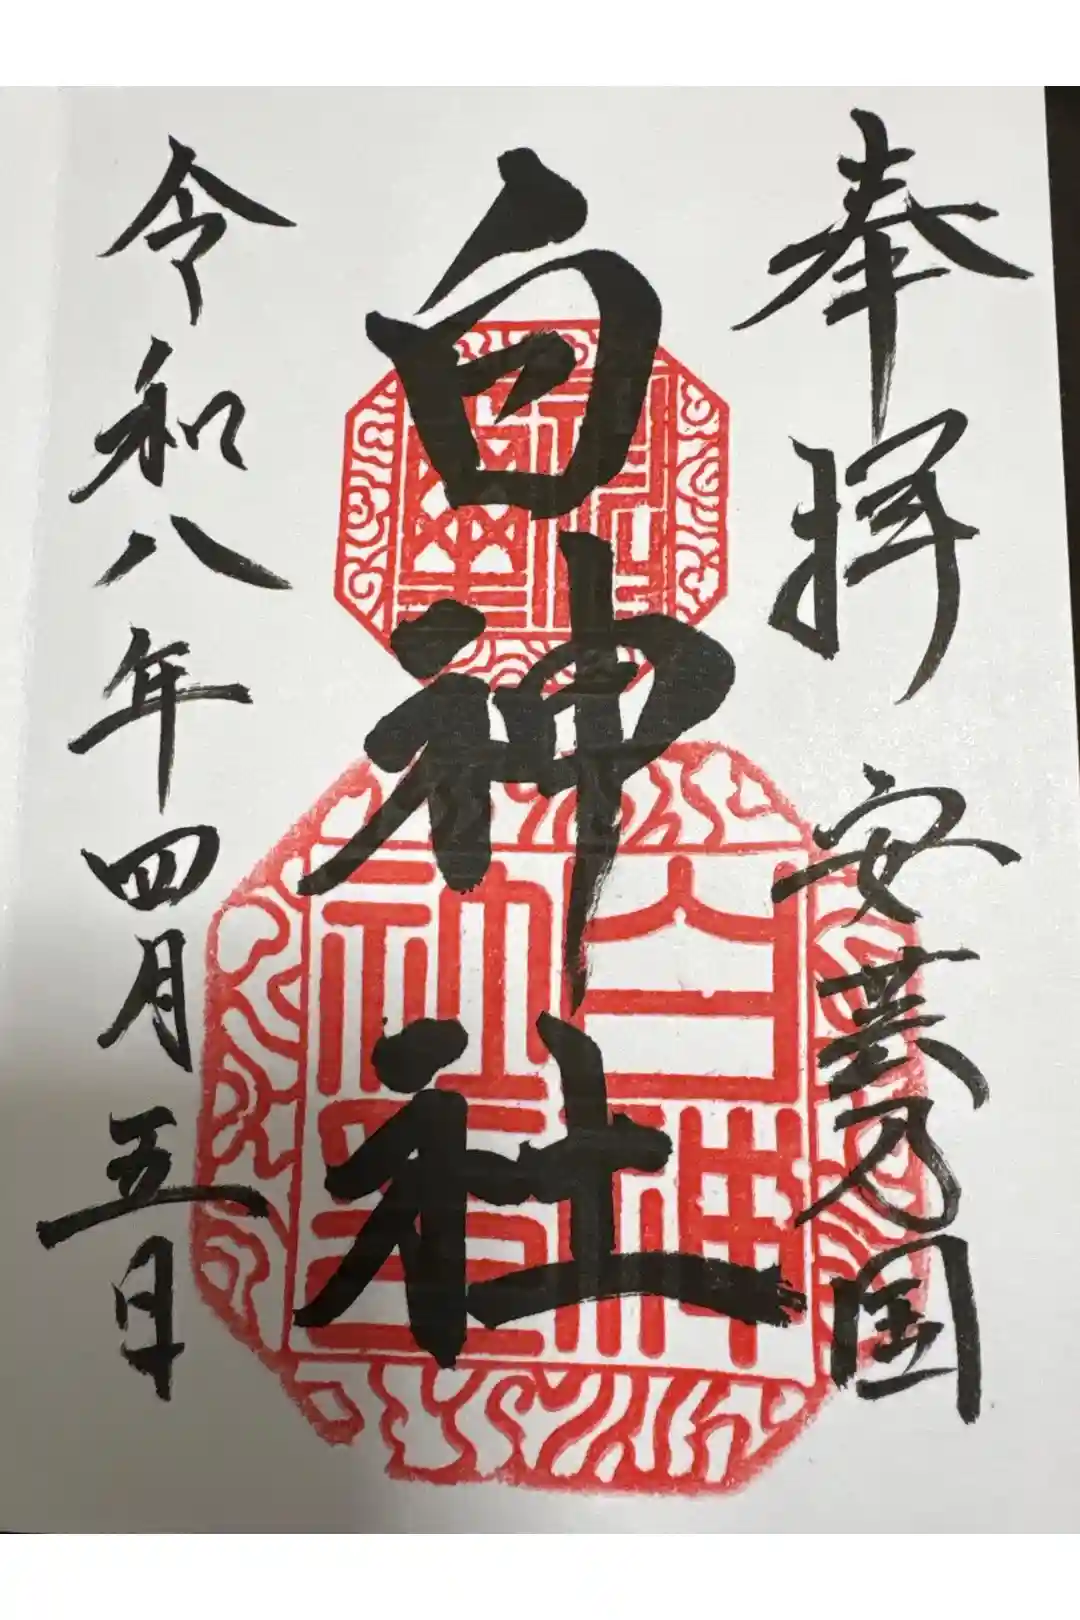 奉拝 安芸乃国
白神社
令和八年四月五日
白神社